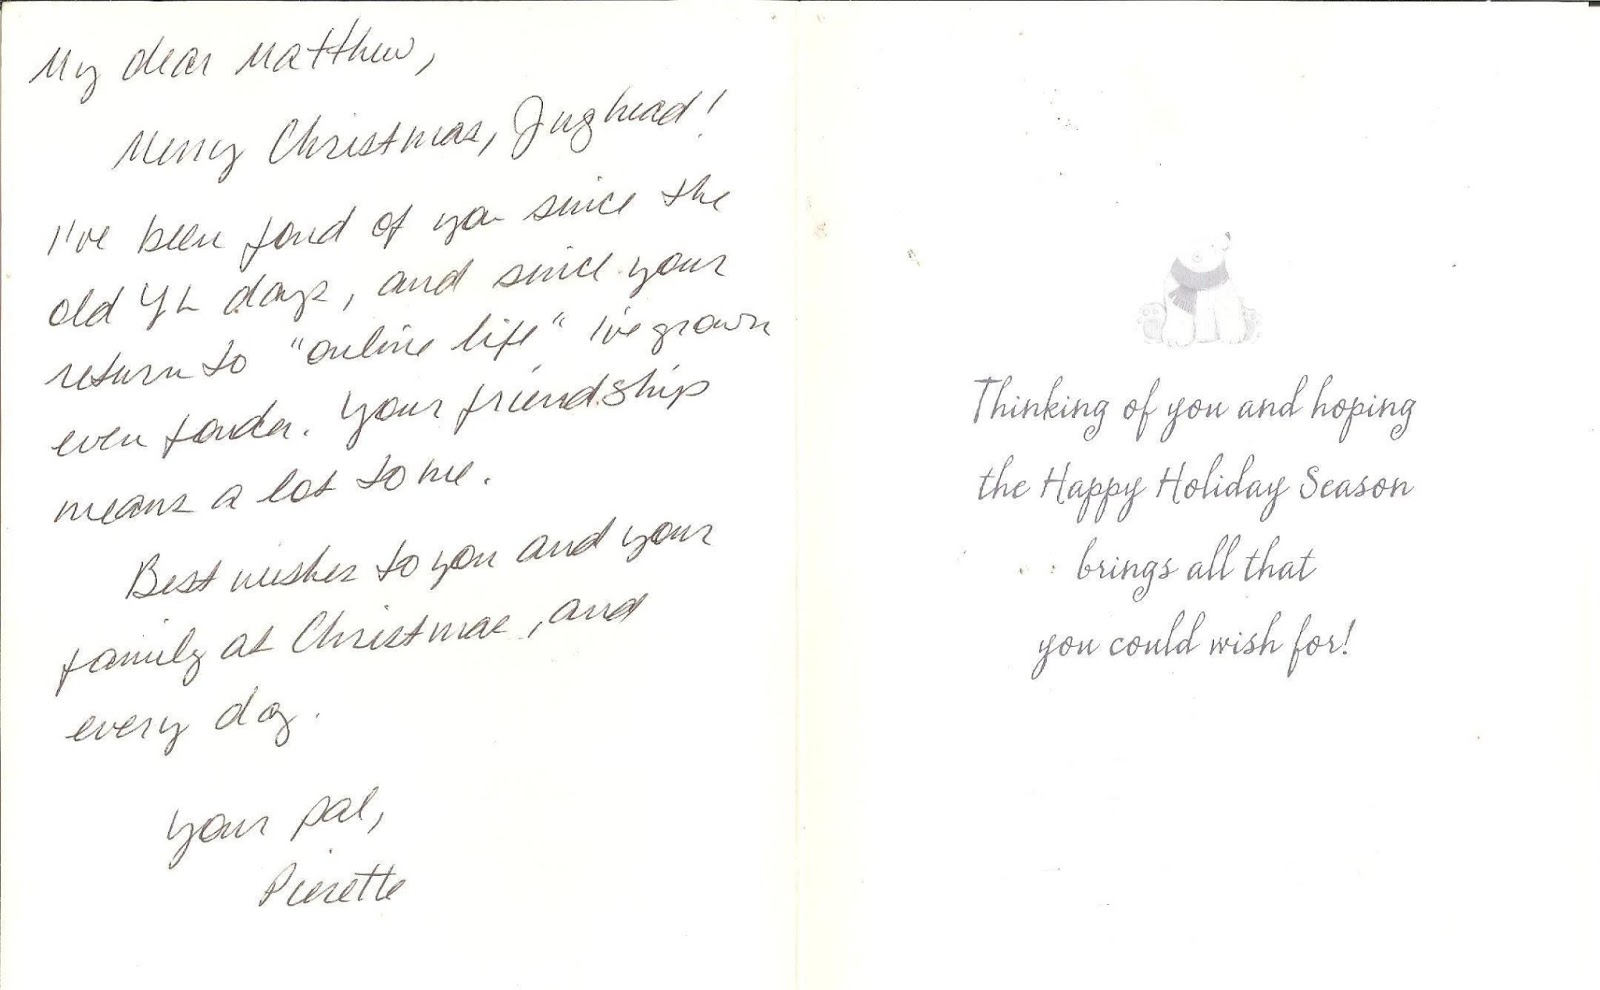 My dear Matthew,
Merry Christmas, Jughead!
I've been fond of you since the
old YL days, and since your
return to "online life" I've grown
even fonder. Your friendship
means a lot to me.
Best wishes to you and your
family at Christmas, and
every day.
Your pal,
Pierette
Thinking of you and hoping
the Happy Holiday Season
brings all that
you could wish for!